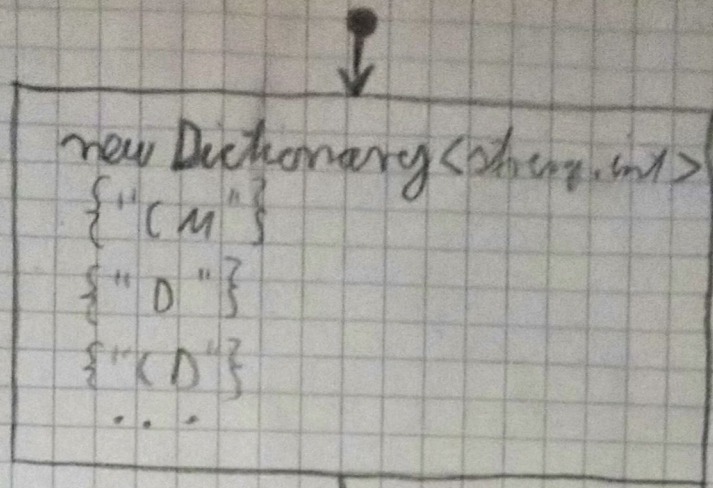 new Dictionary<string, int>
{"CM"}
{"D"}
{"CD"}
...